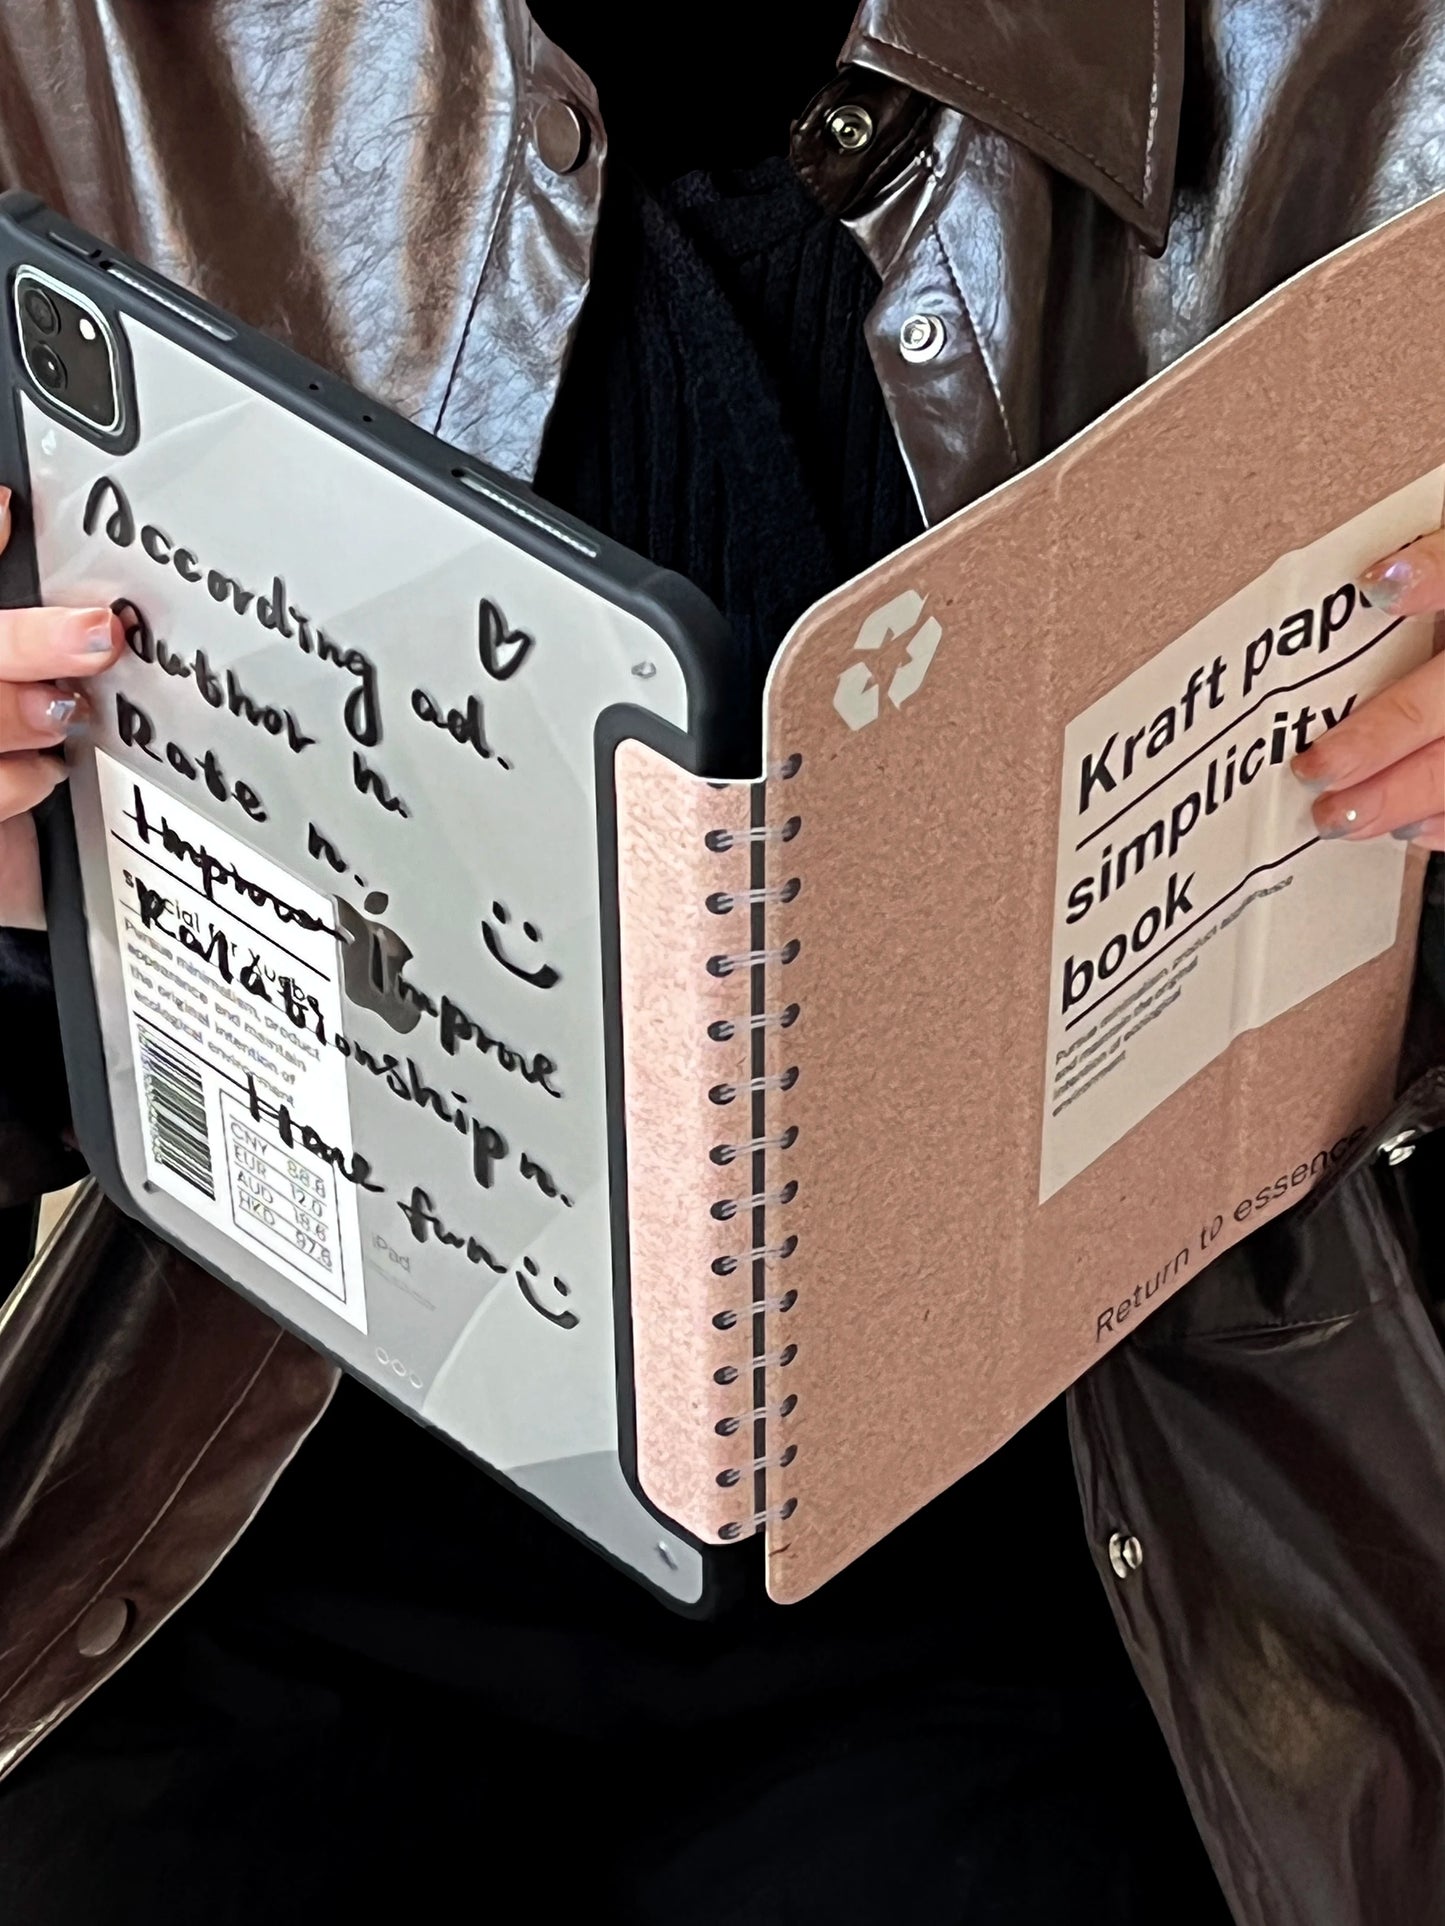 According ad.
Author n.
Rate n.
Improve Improve
Relationship n.
Have fun
special for Xuebe
Pursue minimalism, product
appearance and maintain
the original intention of
ecological environment
CNY 88.8
EUR 12.0
AUD 18.6
HKD 97.6
iPad
Kraft pape
simplicity
book
Pursue minimalism, product appearance
and maintain the original
intention of ecological
environment
Return to essence